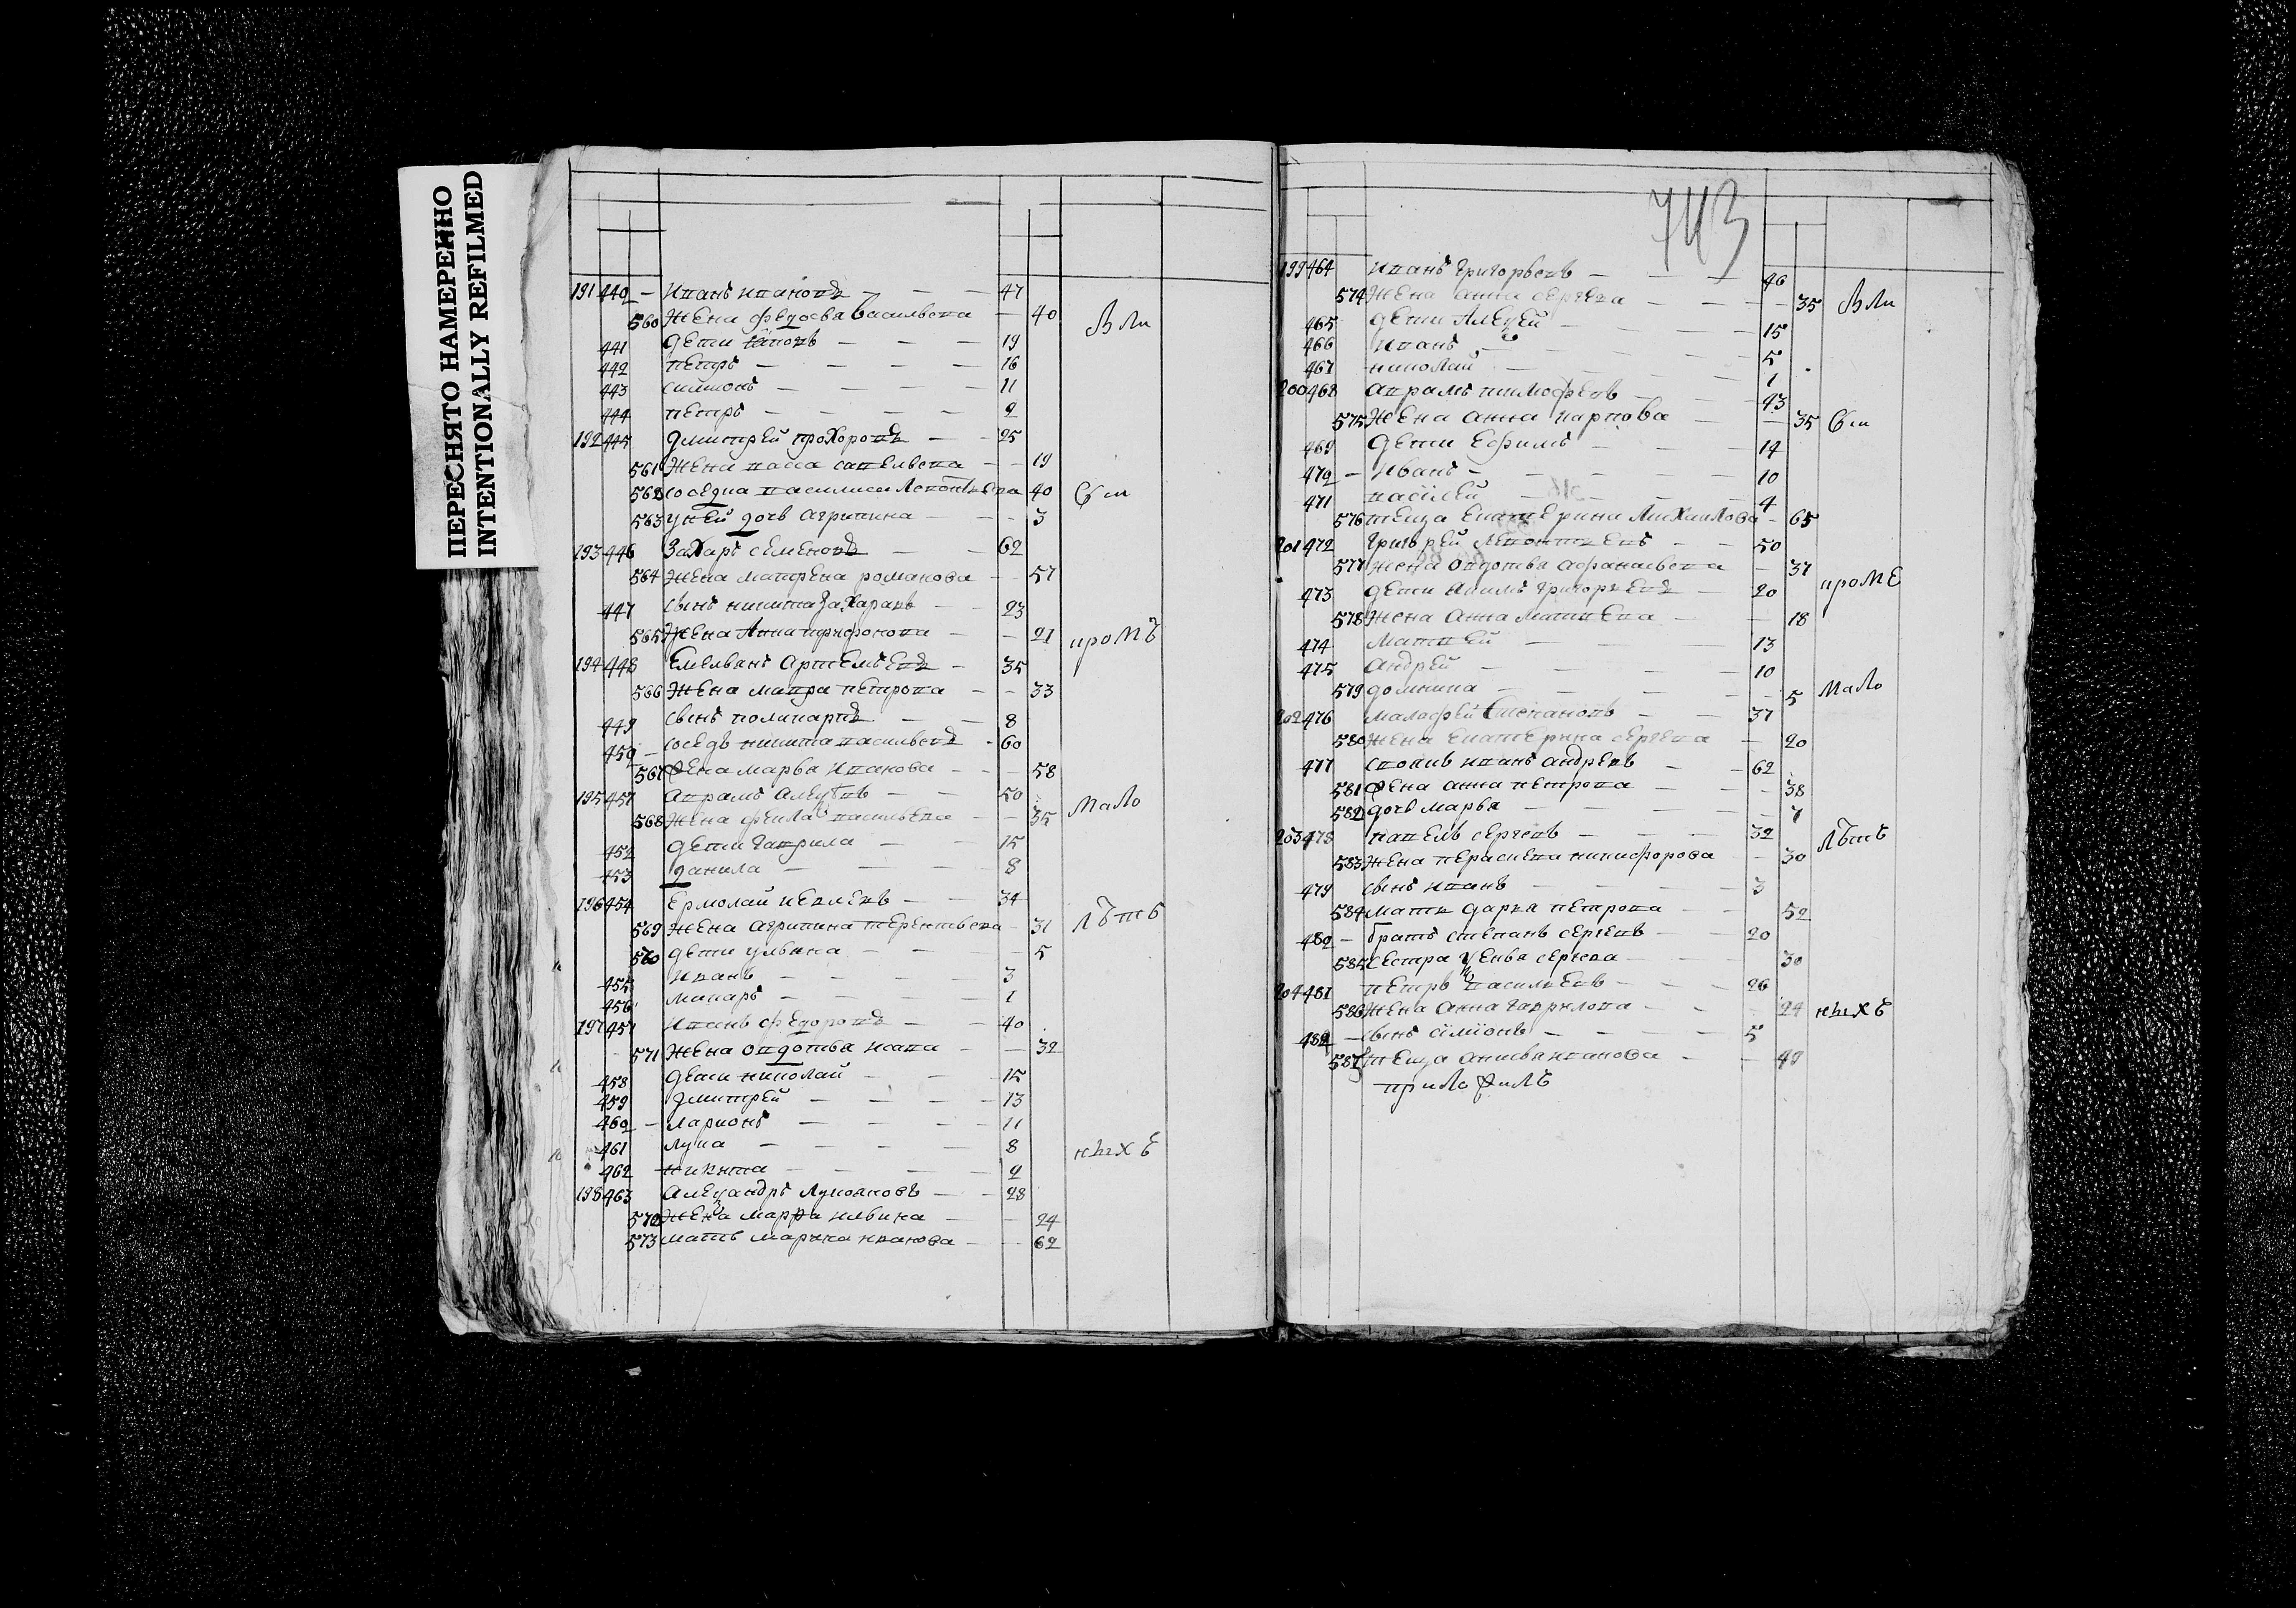 ПЕРЕСНЯТО НАМЕРЕННО
INTENTIONALLY REFILMED
191 440 – Иванъ ивановъ – – – 47
560 жена федосва васильева – 40
Вли
441 дети – – – 19
442 петръ – – – – 16
443 симионъ – – – – 11
444 петръ – – – – 2
192 445 дмитрей прохоровъ – – 25
561 жена васса савельева – – 19
562 соседка василиса 40
Сти
563 уней дочь агрипина – – – 3
193 446 Захаръ семеновъ – – 62
564 жена матрена романова – – 57
447 сынъ никита Захаравъ – – 23
565 жена Анна – – 21
кроме
194 448 Емельянъ артемъевъ – 35
566 жена мавра петрова – – 33
449 сынъ поликарпъ – – 8
450 – соседъ никита васильевъ – 60
567 жена марья иванова – – – 58
195 451 аврамъ алеѯевъ – – 50
Мало
568 жена фекла васильева – – 35
452 дети гаврила – – 15
453 данила – – – – 8
196 454 Ермолай иевлевъ – – 34
569 жена агрипина терентьева – 31
лѣте
560 дети ульяна – – – – 5
455 иванъ – – – – 3
456 макаръ – – – – 1
197 457 иванъ федоровъ – – 40
571 жена овдотья исаева – – 32
458 дети николай – – – 15
459 дмитрей – – – – 13
460 – ларионъ – – – – 11
461 лука – – – – 8
ныхе
462 никита – – – – 2
198 463 алеѯандръ лукояновъ – – 28
572 жена марфа ильина – – 24
573 мать марина иванова – – 62
743
199 464 иванъ григорьевъ – – – 46
574 жена анна сергева – – – 35
Вли
465 дети Алеѯей – – – 15
466 иванъ – – – – 5
467 николай – – – – 1
200 468 аврамъ тимофеевъ – – 43
575 жена анна карпова – – 35
Сти
469 дети Ефимъ – – – 14
470 – иванъ – – – – 10
471 василей – – – 4
576 теща екатерина михаилова – 65
201 472 григорей леонтиевъ – – 50
577 жена овдотья афанасьева – 37
кроме
473 дети акимъ григорьевъ – 20
578 жена анна матвеева – – 18
474 матвей – – – – 13
475 андрей – – – – 10
579 домника – – – – 5
Мало
202 476 малофей степановъ – – 37
580 жена екатерина сергева – 20
477 своякъ иванъ андреевъ – – 62
581 жена анна петрова – – – 38
582 дочь марья – – – – 7
203 478 павелъ сергевъ – – – 32
лѣте
583 жена парасковья никифорова – 30
479 сынъ иванъ – – – – 3
584 мать дарья петрова – – 52
480 – братъ степанъ сергевъ – – 20
585 сестра сергева – – – 30
204 481 петръ васильевъ – – – 26
586 жена анна гаврилова – – – 24
ныхе
482 – сынъ симионъ – – – – 5
587 теща анисья иванова – – 49
приложилъ